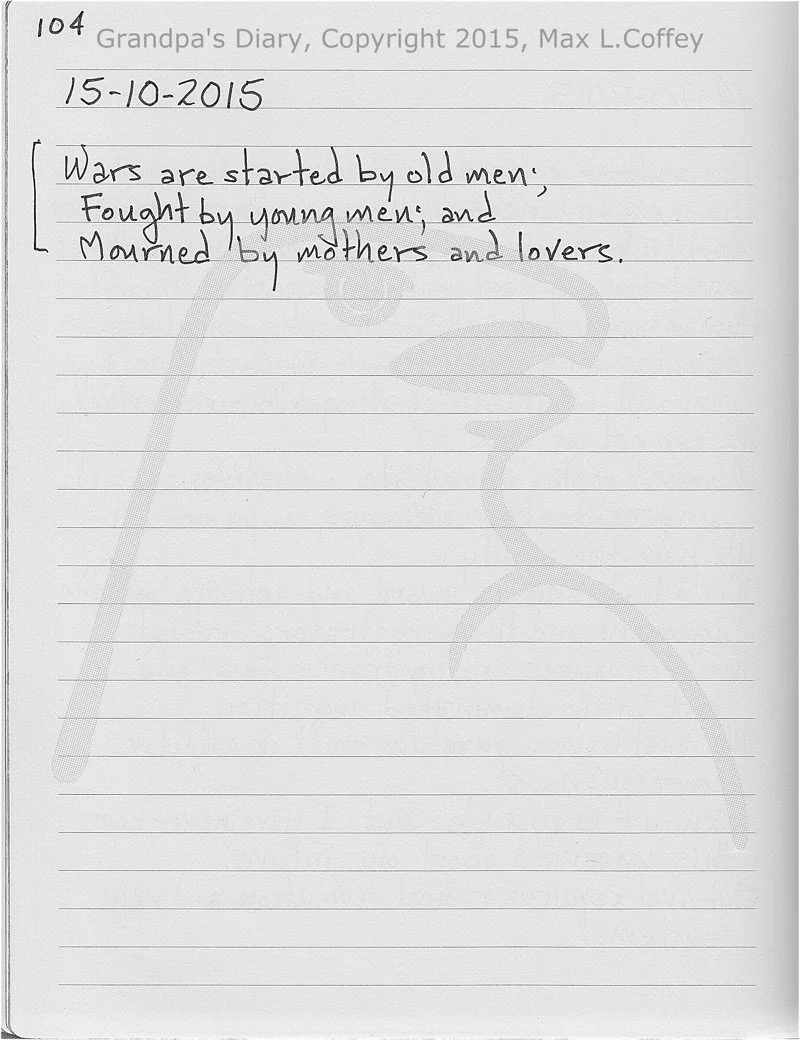 104
Grandpa's Diary, Copyright 2015, Max L.Coffey
15-10-2015
Wars are started by old men;,
Fought by young men; and
Mourned by mothers and lovers.